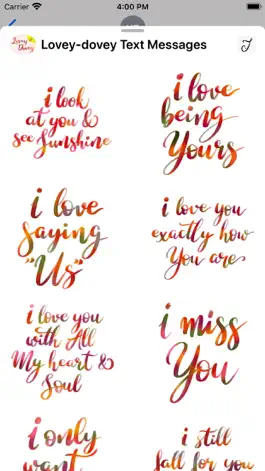 Carrier 4:00 PM
Lovey Dovey Lovey-dovey Text Messages
i look
at you &
see Sunshine
i love
being
Yours
i love
saying
"Us"
i love you
exactly how
You are
i love you
with All
My heart &
Soul
i miss
You
i only
want
i still
fall for you